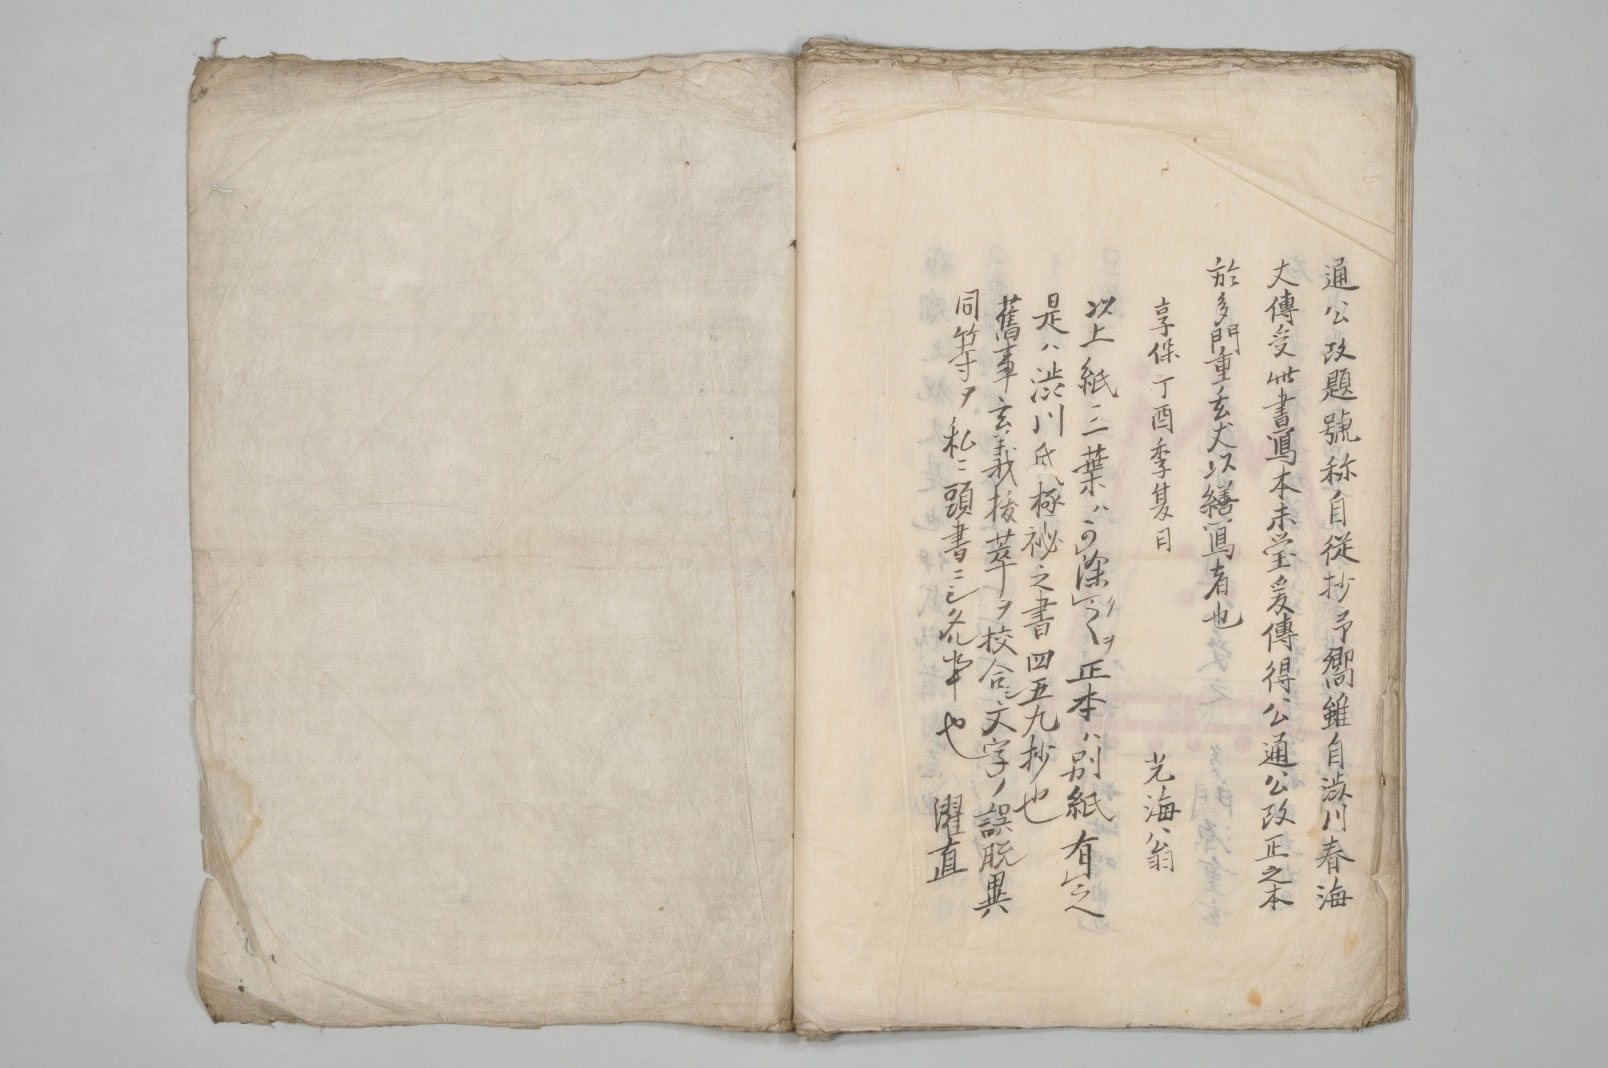 通公改題號称自従抄予嚮雖自澁川春海
丈傳受此書寫本未瑩爰傳得公通公改正之本
於多門重玄丈以繕寫者也
享保丁酉季夏日　光海翁
以上紙二三葉ハ可除之正本ハ別紙有之
是ハ澁川氏極祕之書四五九抄也
舊事玄義抜萃ヲ校合ニ文字ノ誤脱異
同等ヲ私ニ頭書ニ也　濯直